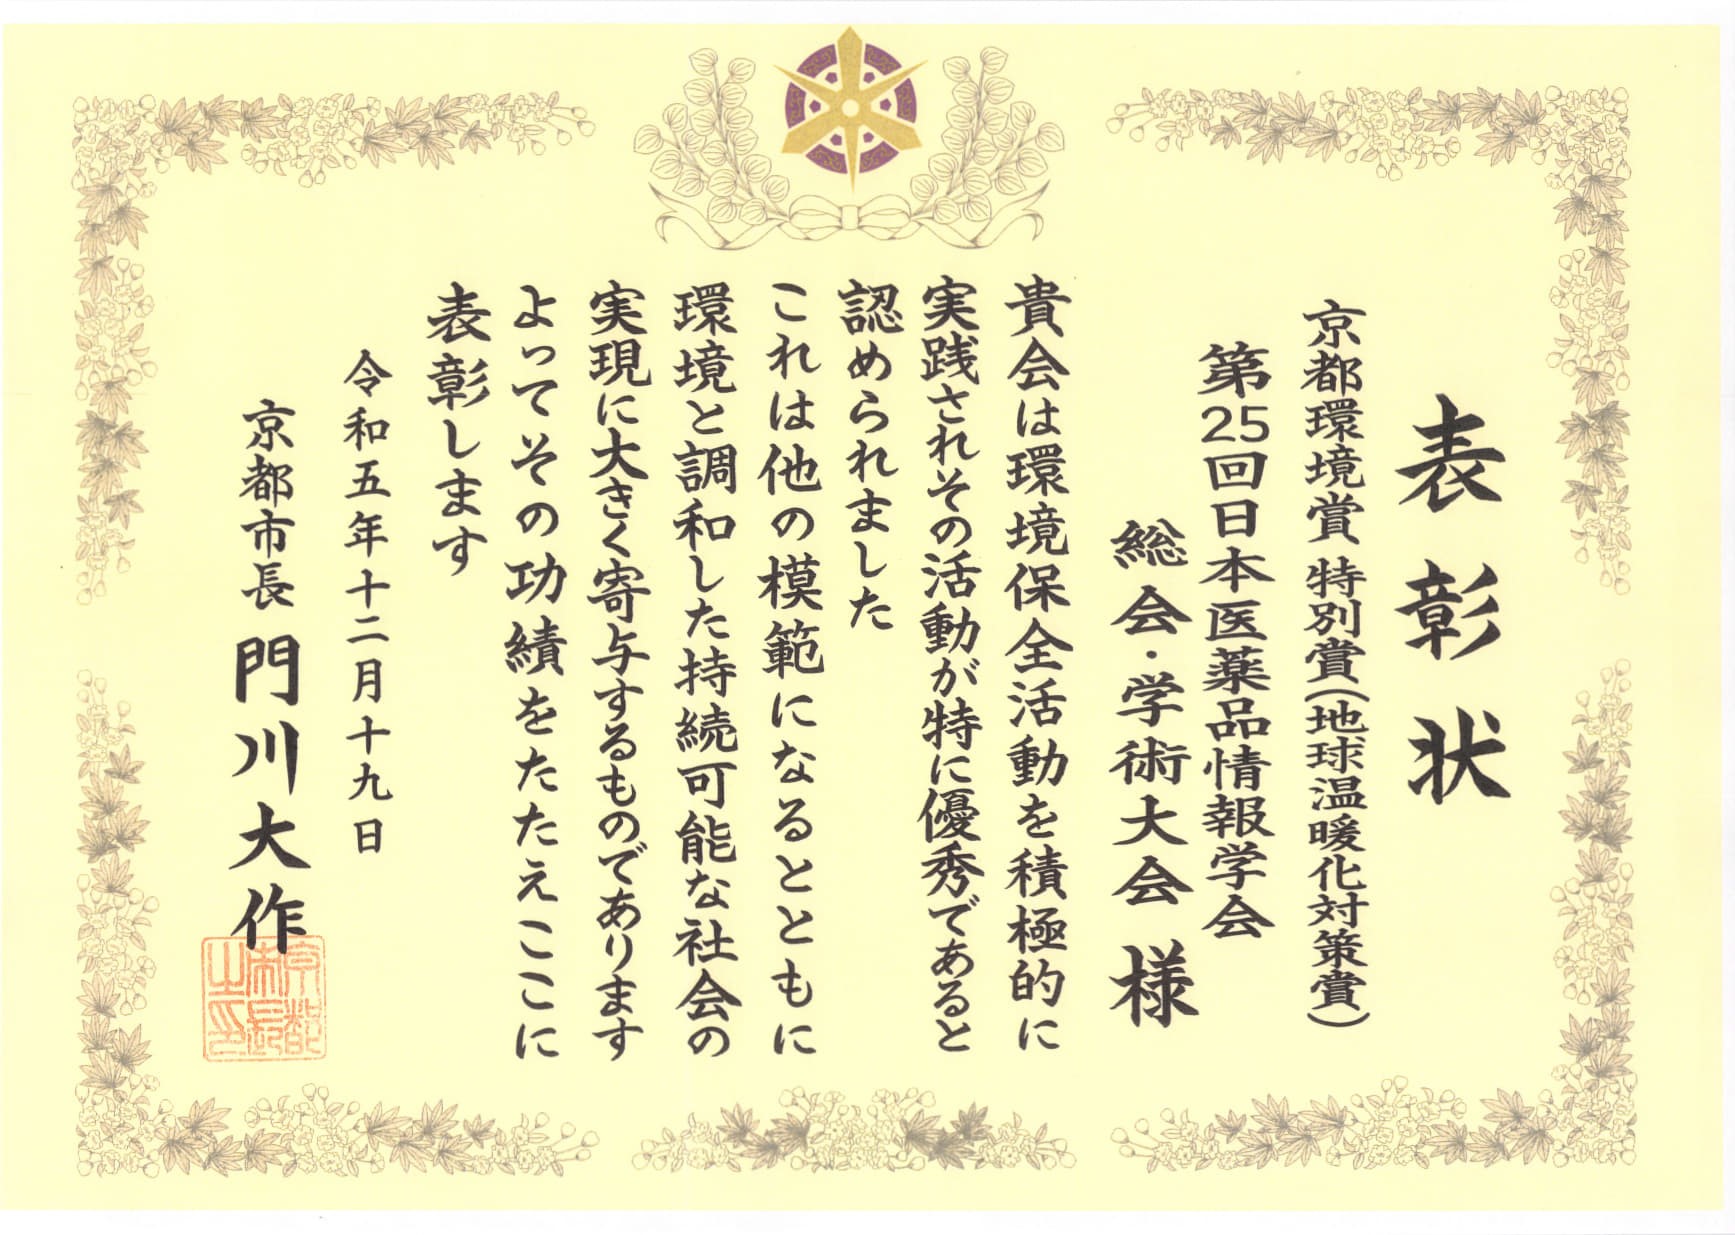 表彰状
京都環境賞 特別賞(地球温暖化対策賞)
第25回日本医薬品情報学会
総会・学術大会 様
貴会は環境保全活動を積極的に
実践されその活動が特に優秀であると
認められました
これは他の模範になるとともに
環境と調和した持続可能な社会の
実現に大きく寄与するものであります
よってその功績をたたえここに
表彰します
令和五年十二月十九日
京都市長 門川大作
京都
市長
之印